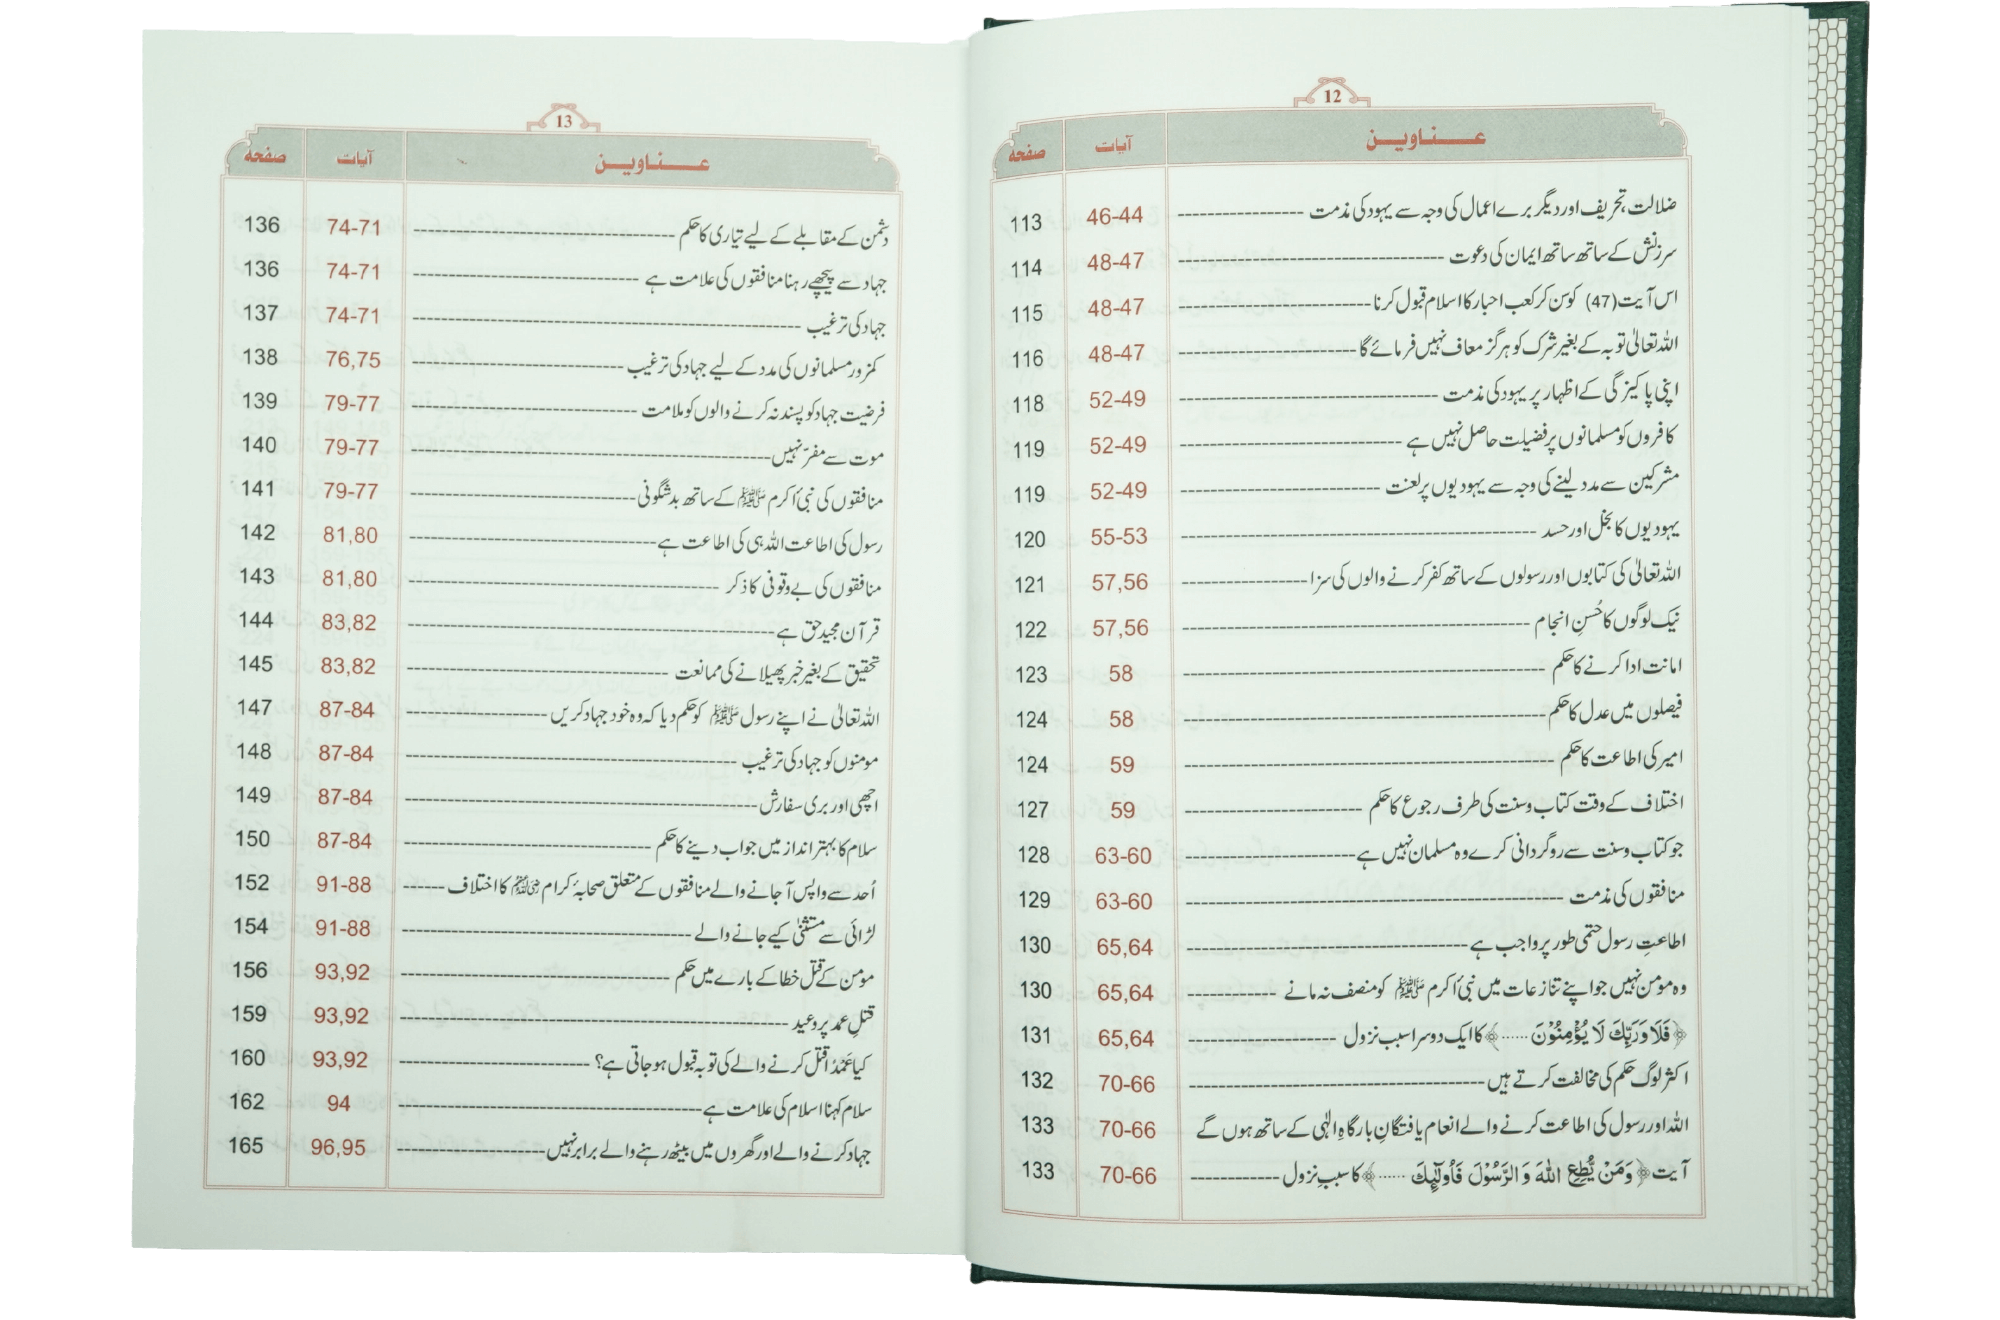 12
عناوین آیات صفحہ
ضلالت، تحریف اور دیگر برے اعمال کی وجہ سے یہود کی مذمت 46-44 113
سرزنش کے ساتھ ساتھ ایمان کی دعوت 48-47 114
اس آیت (47) کو سن کر کعب احبار کا اسلام قبول کرنا 48-47 115
اللہ تعالیٰ توبہ کے بغیر شرک کو ہرگز معاف نہیں فرمائے گا 48-47 116
اپنی پاکیزگی کے اظہار پر یہود کی مذمت 52-49 118
کافروں کو مسلمانوں پر فضیلت حاصل نہیں ہے 52-49 119
مشرکین سے مدد لینے کی وجہ سے یہودیوں پر لعنت 52-49 119
یہودیوں کا بخل اور حسد 55-53 120
اللہ تعالیٰ کی کتابوں اور رسولوں کے ساتھ کفر کرنے والوں کی سزا 57,56 121
نیک لوگوں کا حُسنِ انجام 57,56 122
امانت ادا کرنے کا حکم 58 123
فیصلوں میں عدل کا حکم 58 124
امیر کی اطاعت کا حکم 59 124
اختلاف کے وقت کتاب و سنت کی طرف رجوع کا حکم 59 127
جو کتاب و سنت سے روگردانی کرے وہ مسلمان نہیں ہے 63-60 128
منافقوں کی مذمت 63-60 129
اطاعتِ رسول حتمی طور پر واجب ہے 65,64 130
وہ مومن نہیں جو اپنے تنازعات میں نبی اکرم ﷺ کو منصف نہ مانے 65,64 130
﴿فَلَا وَرَبِّكَ لَا يُؤْمِنُوْنَ ......﴾ کا ایک دوسرا سبب نزول 65,64 131
اکثر لوگ حکم کی مخالفت کرتے ہیں 70-66 132
اللہ اور رسول کی اطاعت کرنے والے انعام یافتگانِ بارگاہِ الٰہی کے ساتھ ہوں گے 70-66 133
آیت ﴿وَمَنْ يُّطِعِ اللّٰهَ وَالرَّسُوْلَ فَاُولٰٓئِكَ ......﴾ کا سببِ نزول 70-66 133
13
عناوین آیات صفحہ
دشمن کے مقابلے کے لیے تیاری کا حکم 74-71 136
جہاد سے پیچھے رہنا منافقوں کی علامت ہے 74-71 136
جہاد کی ترغیب 74-71 137
کمزور مسلمانوں کی مدد کے لیے جہاد کی ترغیب 76,75 138
فرضیت جہاد کو پسند نہ کرنے والوں کو ملامت 79-77 139
موت سے مفرّ نہیں 79-77 140
منافقوں کی نبی اکرم ﷺ کے ساتھ بدشگونی 79-77 141
رسول کی اطاعت اللہ ہی کی اطاعت ہے 81,80 142
منافقوں کی بے وقوفی کا ذکر 81,80 143
قرآن مجید حق ہے 83,82 144
تحقیق کے بغیر خبر پھیلانے کی ممانعت 83,82 145
اللہ تعالیٰ نے اپنے رسول ﷺ کو حکم دیا کہ وہ خود جہاد کریں 87-84 147
مومنوں کو جہاد کی ترغیب 87-84 148
اچھی اور بری سفارش 87-84 149
سلام کا بہتر انداز میں جواب دینے کا حکم 87-84 150
اُحد سے واپس آ جانے والے منافقوں کے متعلق صحابہ کرام کا اختلاف 91-88 152
لڑائی سے مستثنیٰ کیے جانے والے 91-88 154
مومن کے قتل خطا کے بارے میں حکم 93,92 156
قتلِ عمد پر وعید 93,92 159
کیا عَمْدًا قتل کرنے والے کی توبہ قبول ہو جاتی ہے؟ 93,92 160
سلام کہنا اسلام کی علامت ہے 94 162
جہاد کرنے والے اور گھروں میں بیٹھ رہنے والے برابر نہیں 96,95 165